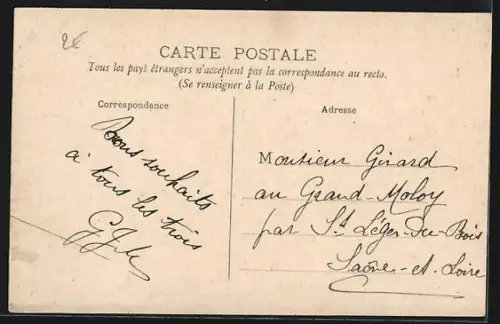 2€
CARTE POSTALE
Tous les pays étrangers n'acceptent pas la correspondance au recto.
(Se renseigner à la Poste)
Correspondance
Bons souhaits
à tous les trois
Adresse
Monsieur Girard
au Grand-Moloy
par St Léger-Du-Bois
Saône-et-Loire